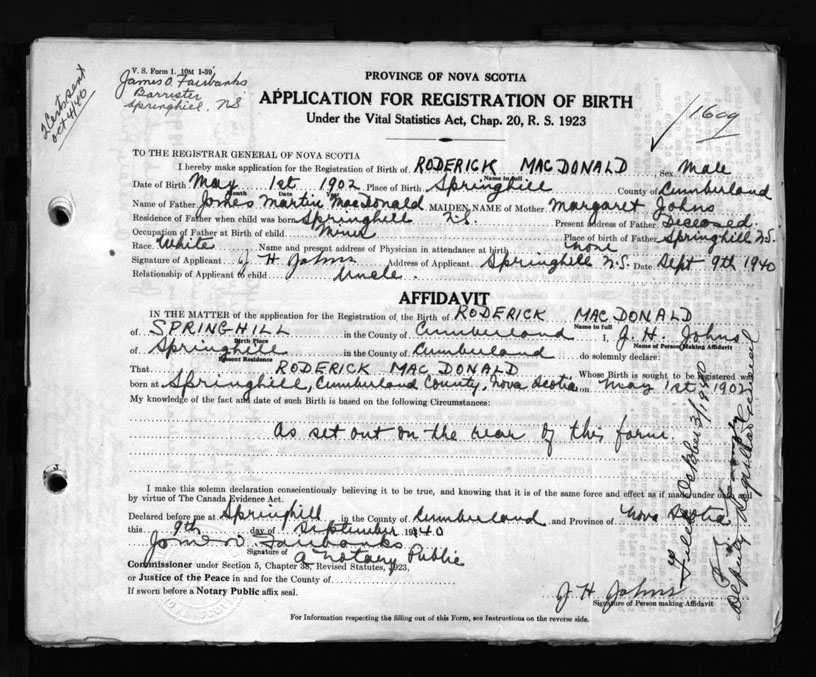 V. S. Form 1. 10M 1-39
James O. Fairbanks
Barrister
Springhill, N.S
2 Certs sent
Oct 4/40
PROVINCE OF NOVA SCOTIA
APPLICATION FOR REGISTRATION OF BIRTH
Under the Vital Statistics Act, Chap. 20, R. S. 1923
TO THE REGISTRAR GENERAL OF NOVA SCOTIA
I hereby make application for the Registration of Birth of RODERICK MACDONALD, Sex Male
Name in full
Date of Birth May 1st 1902 Place of Birth Springhill County of Cumberland
Month Date Year
Name of Father James Martin MacDonald MAIDEN NAME of Mother Margaret Johns
Residence of Father when child was born Springhill N.S. Present address of Father Deceased.
Occupation of Father at Birth of child Miner Place of birth of Father Springhill N.S.
Race White Name and present address of Physician in attendance at birth none
Signature of Applicant J H Johns Address of Applicant Springhill N.S. Date Sept 9th 1940
Relationship of Applicant to child Uncle.
AFFIDAVIT
IN THE MATTER of the application for the Registration of the Birth of RODERICK MACDONALD
Name in full
of SPRINGHILL in the County of Cumberland I, J. H. Johns
Birth Place Name of Person Making Affidavit
of Springhill in the County of Cumberland do solemnly declare:
Present Residence
That RODERICK MACDONALD Whose Birth is sought to be registered was
born at Springhill, Cumberland County, Nova Scotia on May 1st 1902
My knowledge of the fact and date of such Birth is based on the following Circumstances:
As set out on the rear of this form.
I make this solemn declaration conscientiously believing it to be true, and knowing that it is of the same force and effect as if made under oath and
by virtue of The Canada Evidence Act.
Declared before me at Springhill in the County of Cumberland and Province of Nova Scotia
this 9th day of September 1940
James O. Fairbanks
Signature of A Notary Public
Commissioner under Section 5, Chapter 38, Revised Statutes, 1923,
or Justice of the Peace in and for the County of
If sworn before a Notary Public affix seal.
J. H Johns
Signature of Person making Affidavit
For Information respecting the filling out of this Form, see Instructions on the reverse side.
Filed October 3/1940
Deputy Registrar General